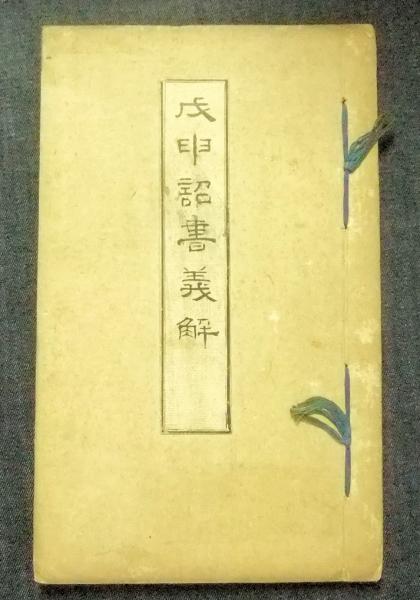 戊申詔書義解